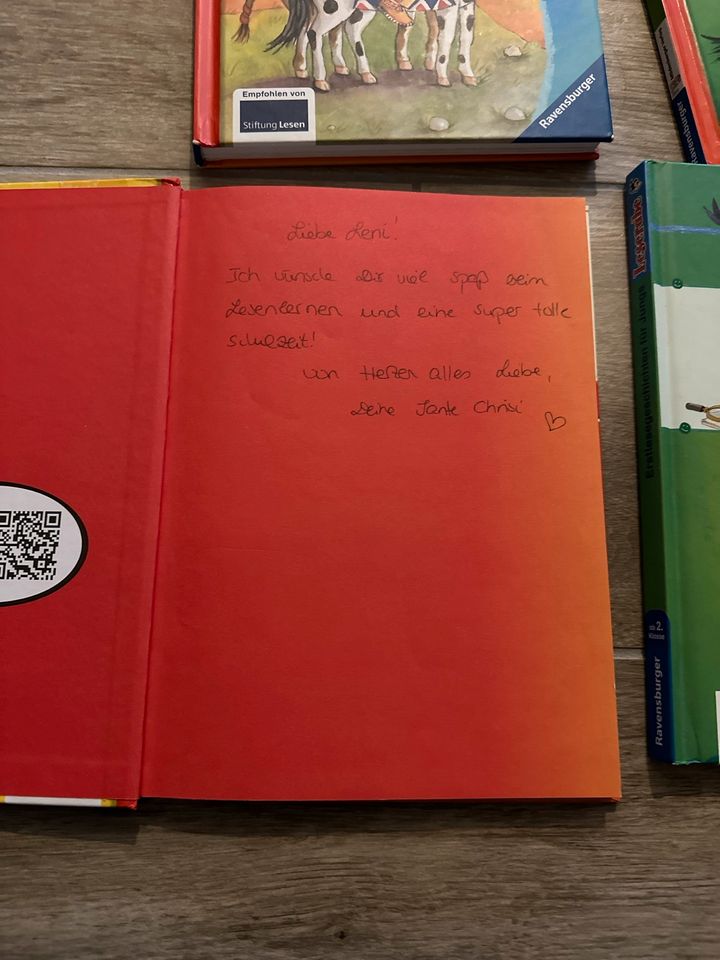 Empfohlen von
Stiftung Lesen
Ravensburger
Liebe Leni!
Ich wünsche Dir viel Spaß beim
Lesenlernen und eine super tolle
Schulzeit!
Von Herzen alles Liebe,
Deine Tante Chrisi
Leserabe
Erstlesegeschichten für Jungs
ab 2.
Klasse
Ravensburger
Ravensburger